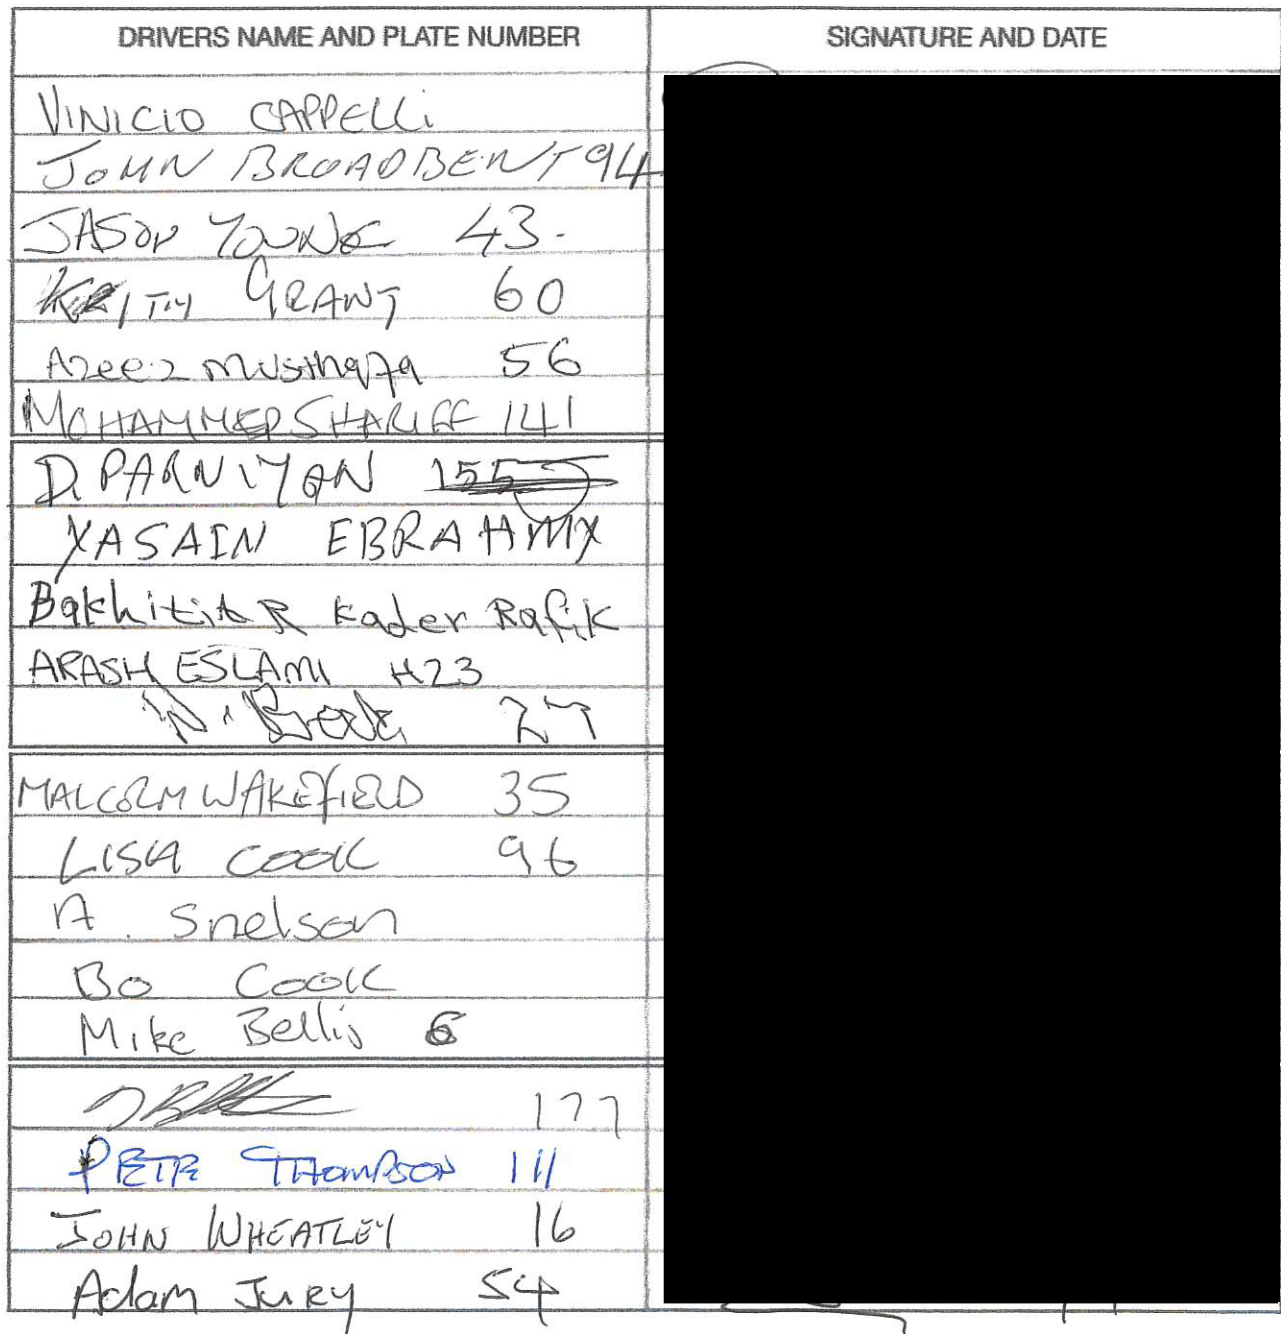 DRIVERS NAME AND PLATE NUMBER SIGNATURE AND DATE
VINICIO CAPPELLi
JOHN BROADBENT 94
JASON YOUNG 43.
KEITH GRANT 60
Azeez musthafa 56
MOHAMMED SHARIFF 141
D. PARNIYAN 155
YASAIN EBRAHIMY
Kader Rafik
ARASH ESLAMI H23
N. 27
MALCOLM WAKEFIELD 35
LISA COOK 96
A. Snelson
Bo Cook
Mike Bellis 6
177
PETR THOMPSON 111
JOHN WHEATLEY 16
Adam Jury 54